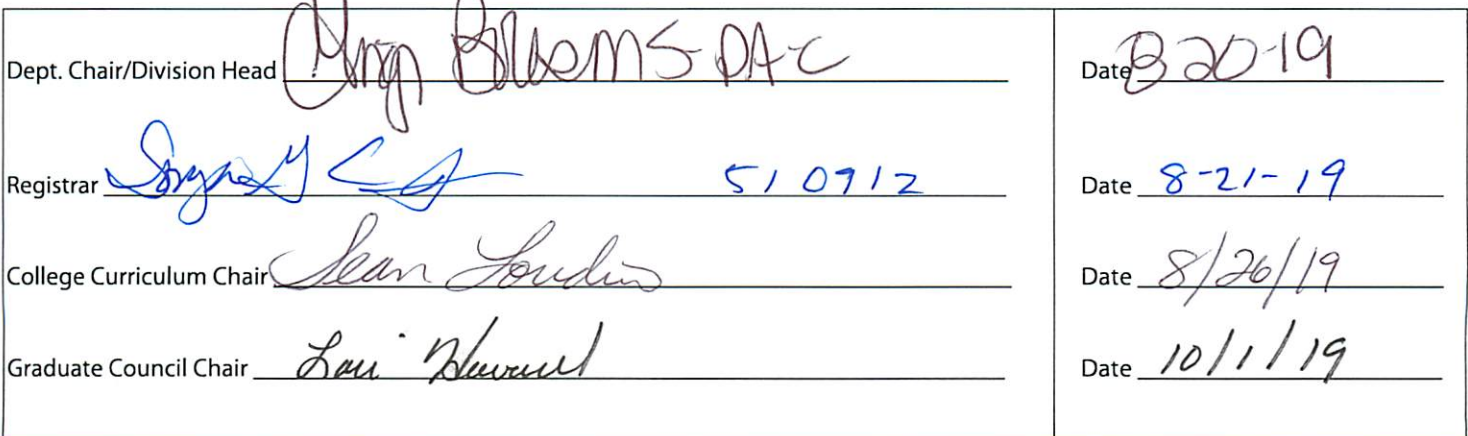 Dept. Chair/Division Head MS PA-C Date 8-20-19
Registrar 510912 Date 8-21-19
College Curriculum Chair Sean Loudin Date 8/26/19
Graduate Council Chair Lori Howard Date 10/1/19